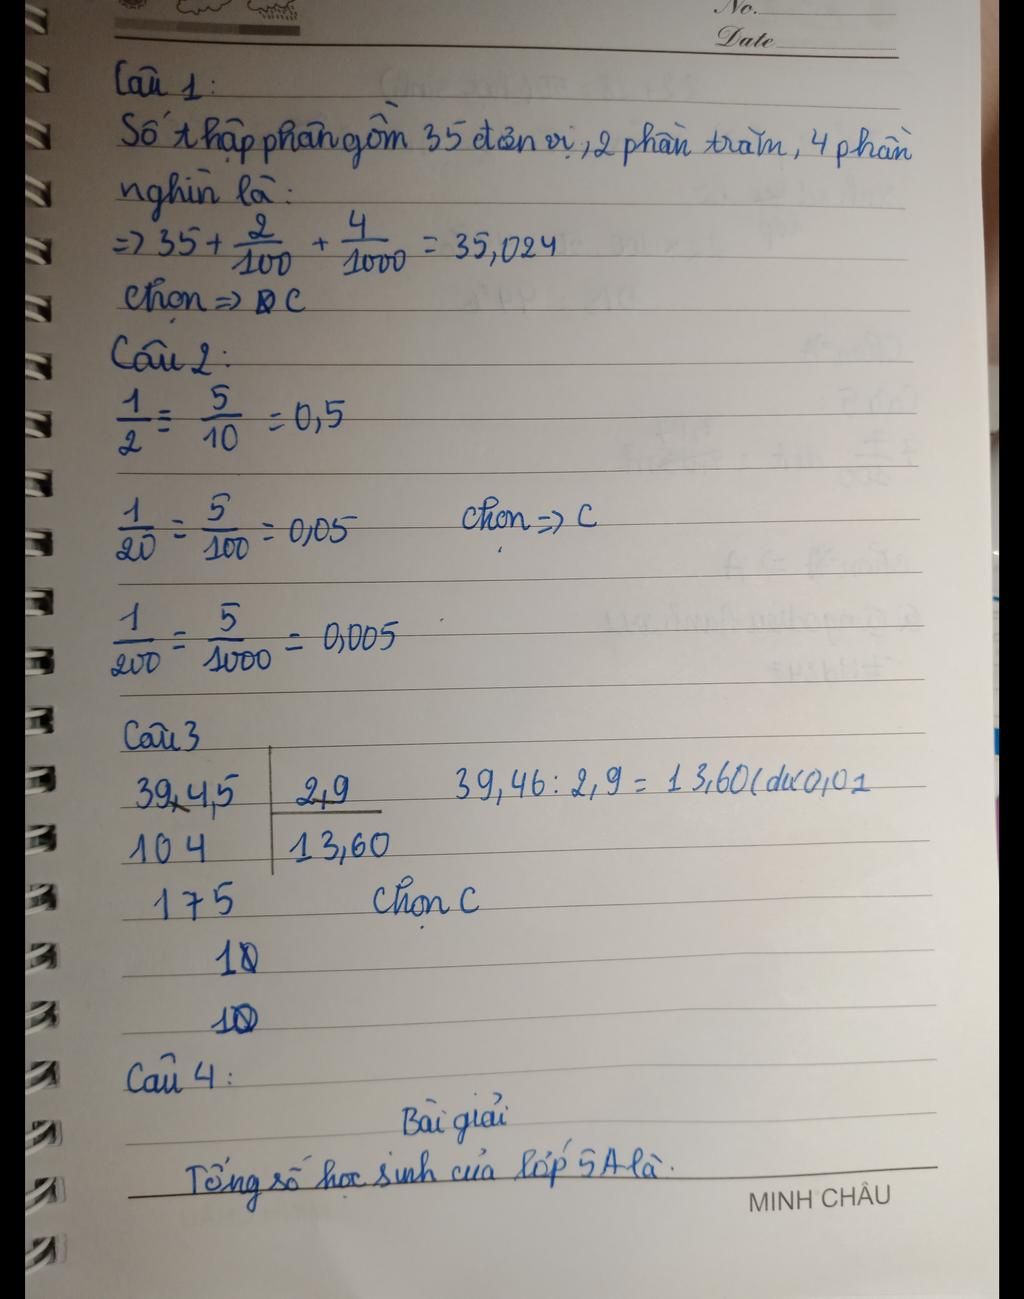 No.
Date
Câu 1:
Số thập phân gồm 35 đơn vị, 2 phần trăm, 4 phần
nghìn là:
=> 35 + 2/100 + 4/1000 = 35,024
chọn => C
Câu 2:
1/2 = 5/10 = 0,5
1/20 = 5/100 = 0,05 chọn => C
1/200 = 5/1000 = 0,005
Câu 3
39,4,5 2,9 39,46 : 2,9 = 13,60 (dư 0,01
104 13,60
175 chọn C
10
10
Câu 4:
Bài giải
Tổng số học sinh của lớp 5A là.
MINH CHÂU